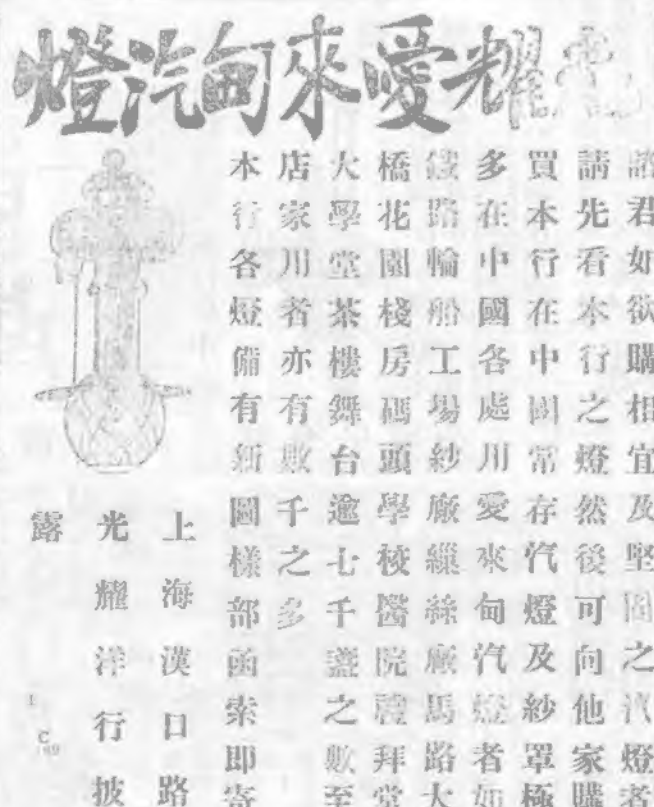 燈汽甸來愛耀光
諸君如欲購相宜及堅固之汽燈者
請先看本行之燈然後可向他家購
買本行在中國常存汽燈及紗罩極
多在中國各處用愛來甸汽燈者如
鐵路輪船工場紗廠繅絲廠馬路大
橋花園棧房碼頭學校醫院禮拜堂
大學堂茶樓舞台逾七千盞之數至
店家用者亦有數千之多
本行各燈備有新圖樣部函索即寄
上海漢口路
光耀洋行披
露